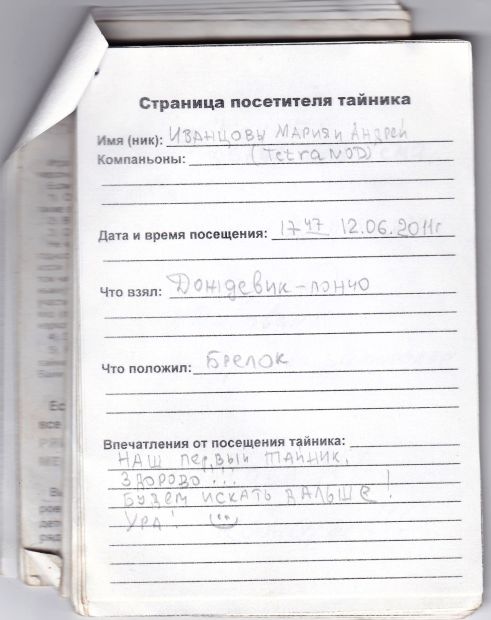 Страница посетителя тайника
Имя (ник): ИВАНЦОВЫ МАРИЯ И АНДРЕЙ
Компаньоны: (TetraNOD)
Дата и время посещения: 17 47 12.06.2011г
Что взял: Дождевик-пончо
Что положил: Брелок
Впечатления от посещения тайника:
НАШ первый ТАЙНИК.
ЗДОРОВО...
БУДЕМ ИСКАТЬ ДАЛЬШЕ!
УРА!